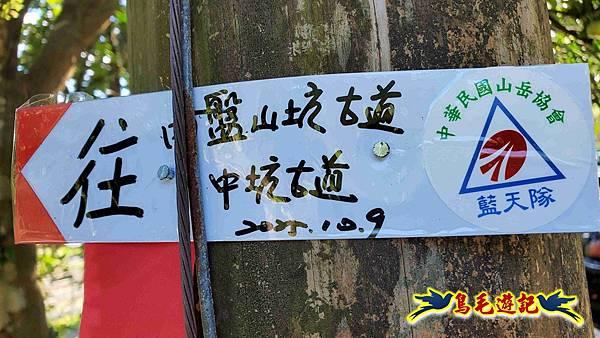 往
盤山坑古道
中坑古道
2025.10.9
中華民國山岳協會
藍天隊
鳥毛遊記